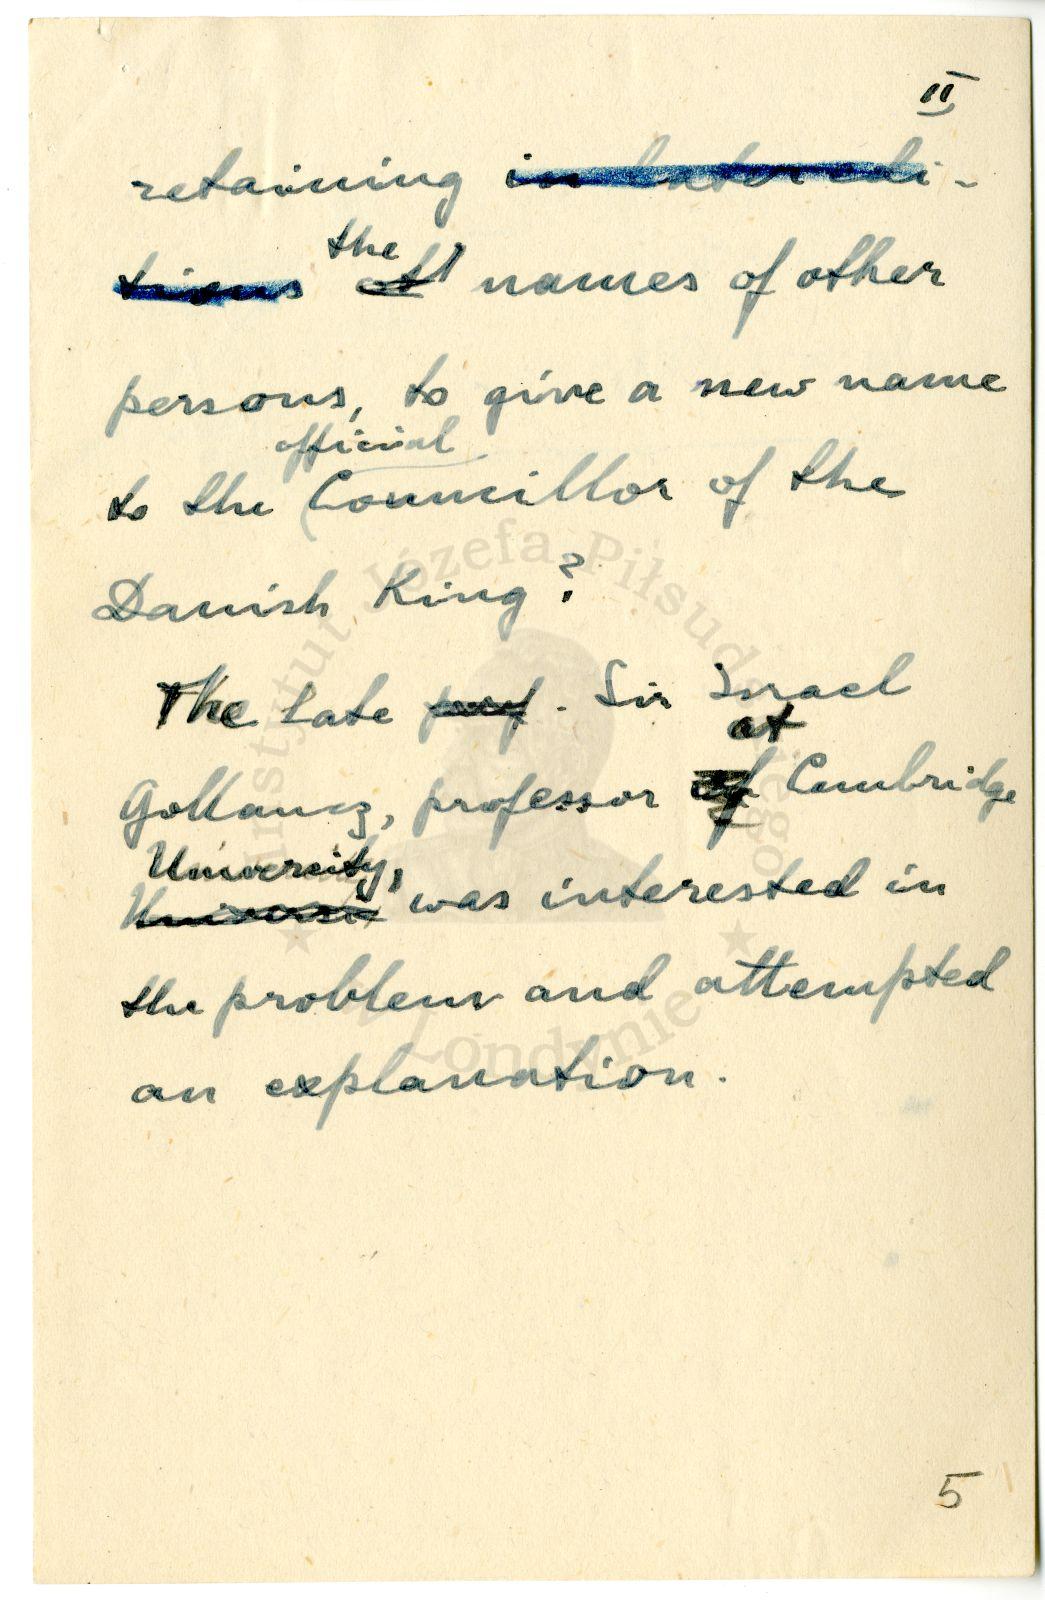 II
retaining in later edi-
tions the all names of other
persons, to give a new name
official
to the Councillor of the
Danish King?
The late prof. Sir Israel
at
Gollancz, professor of Cambridge
University,
Universi was interested in
the problem and attempted
an explanation.
5
Instytut Józefa Piłsudskiego
w Londynie